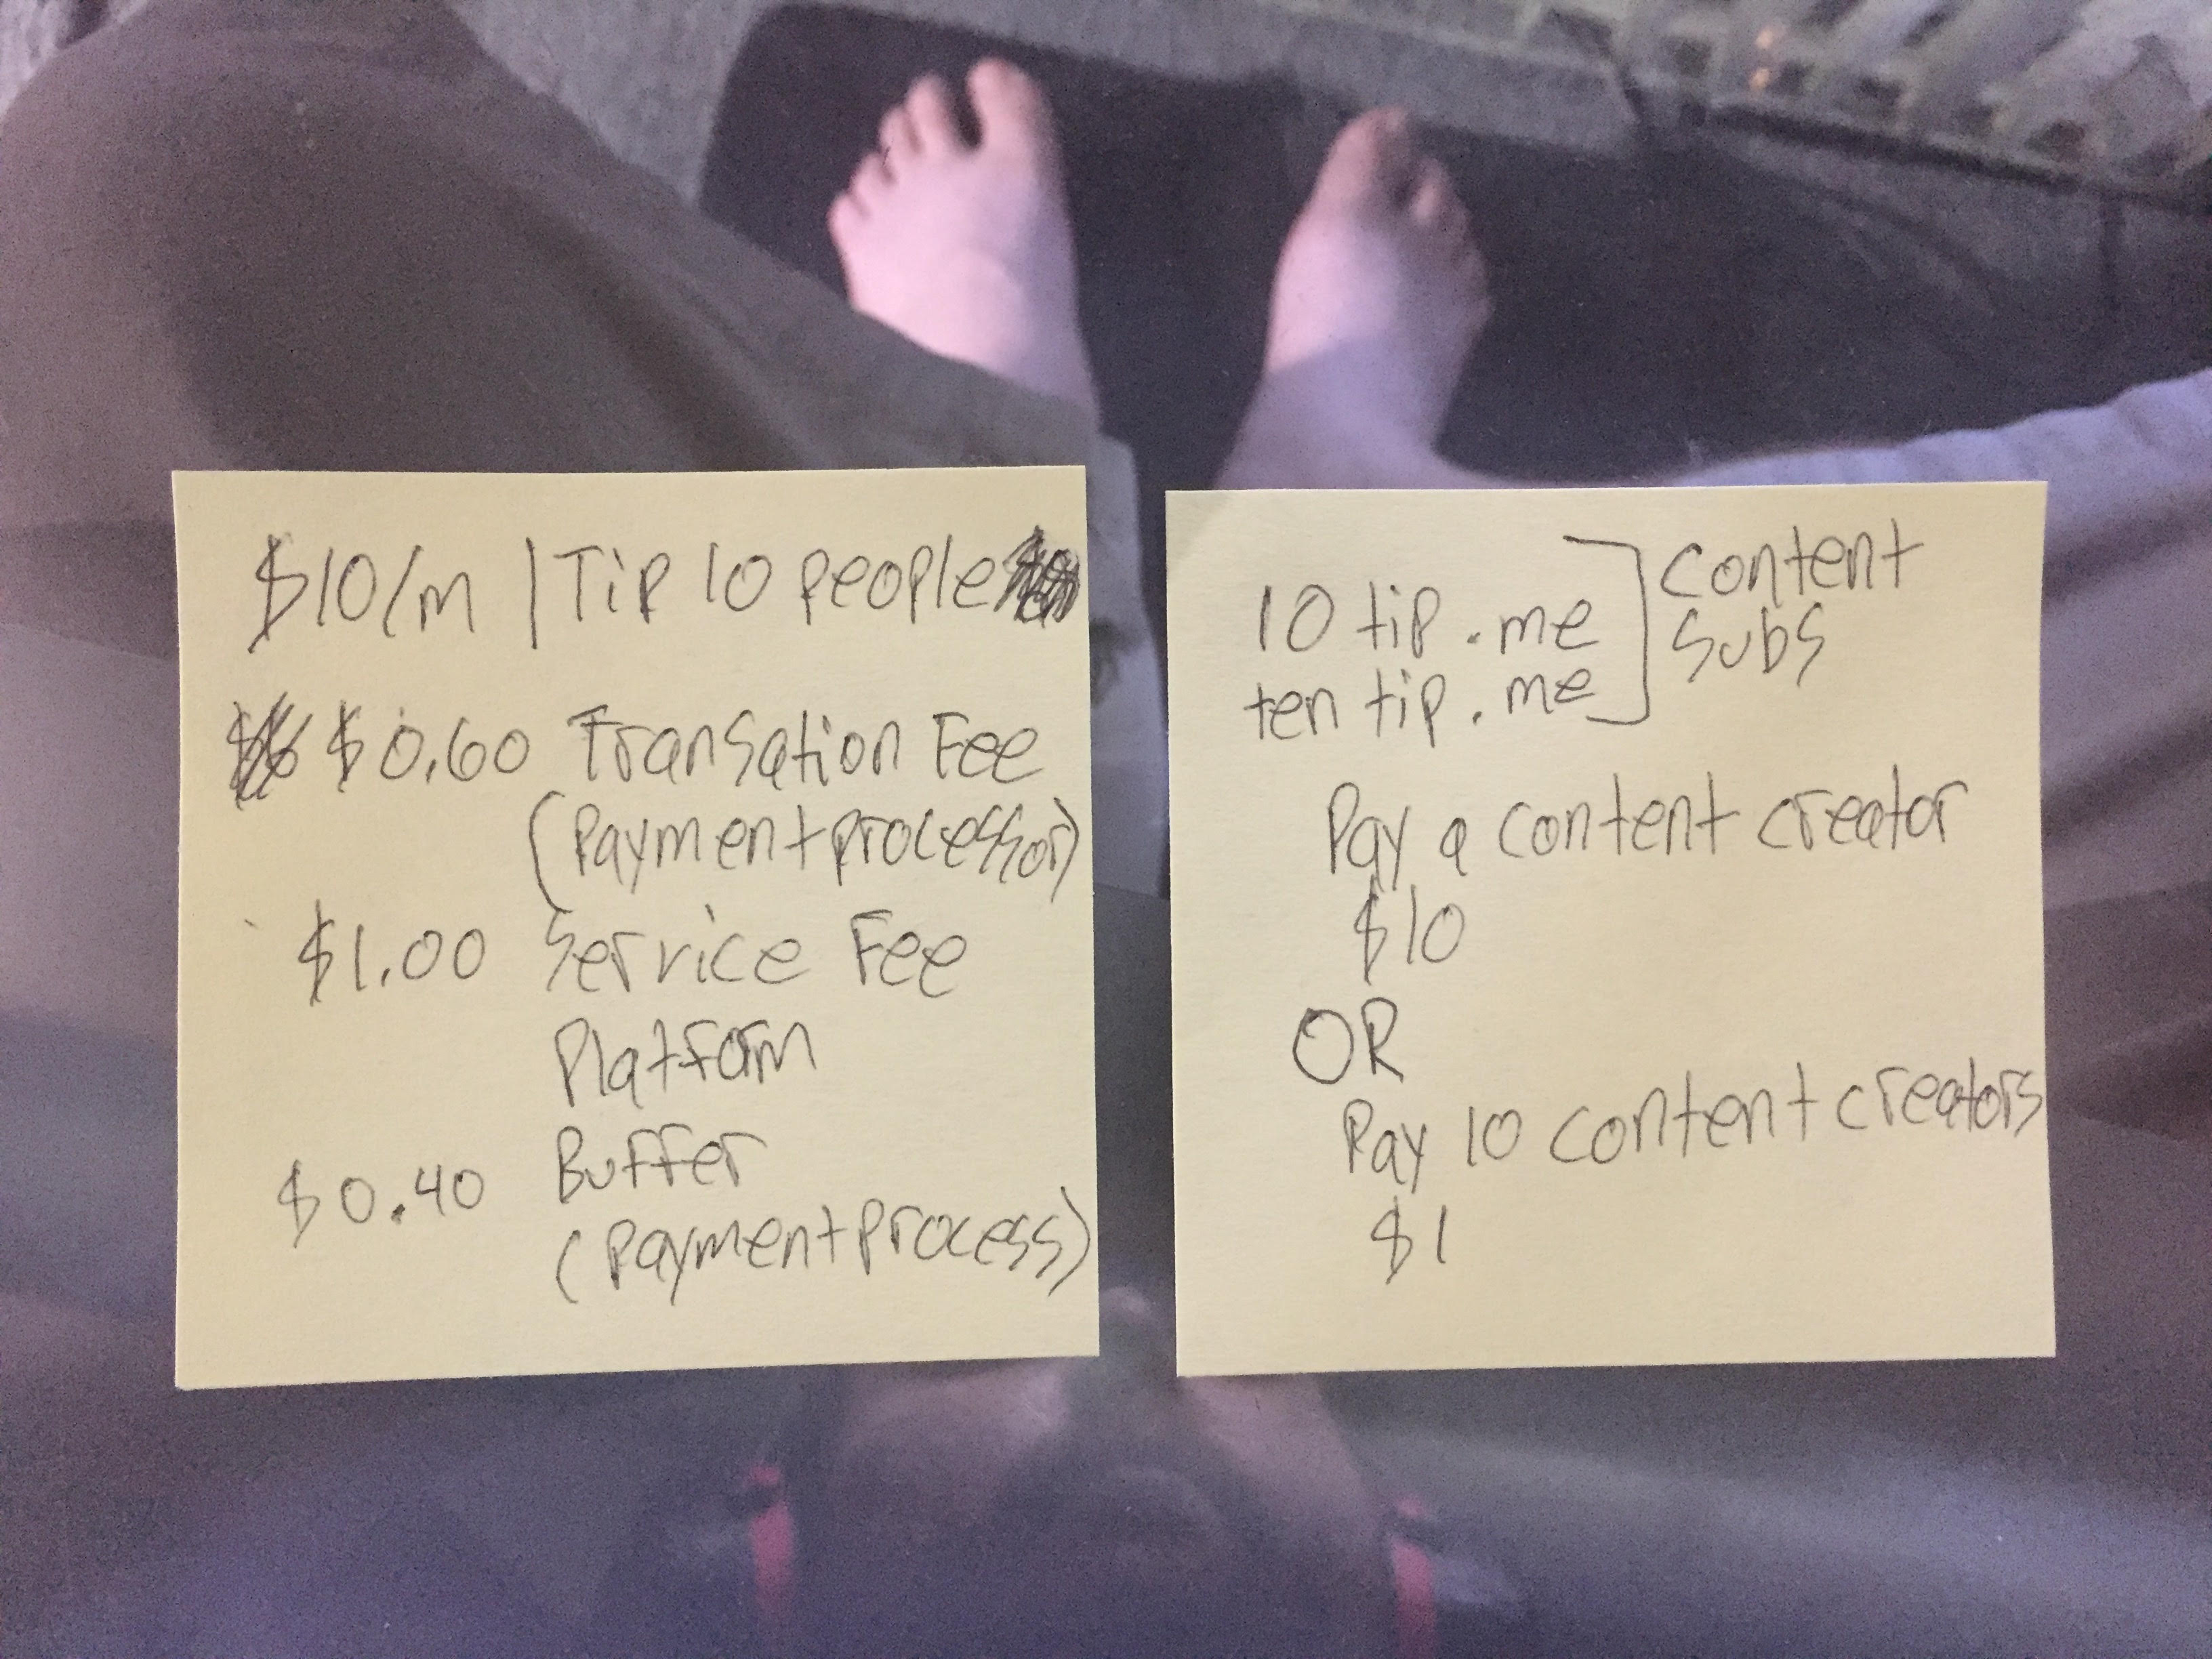 $10/m | Tip 10 people
$0.60 Transation Fee
(Payment processor)
$1.00 Service Fee
Platform
$0.40 Buffer
(Payment process)
10 tip.me
ten tip.me
content
subs
Pay a content creator
$10
OR
Pay 10 content creators
$1